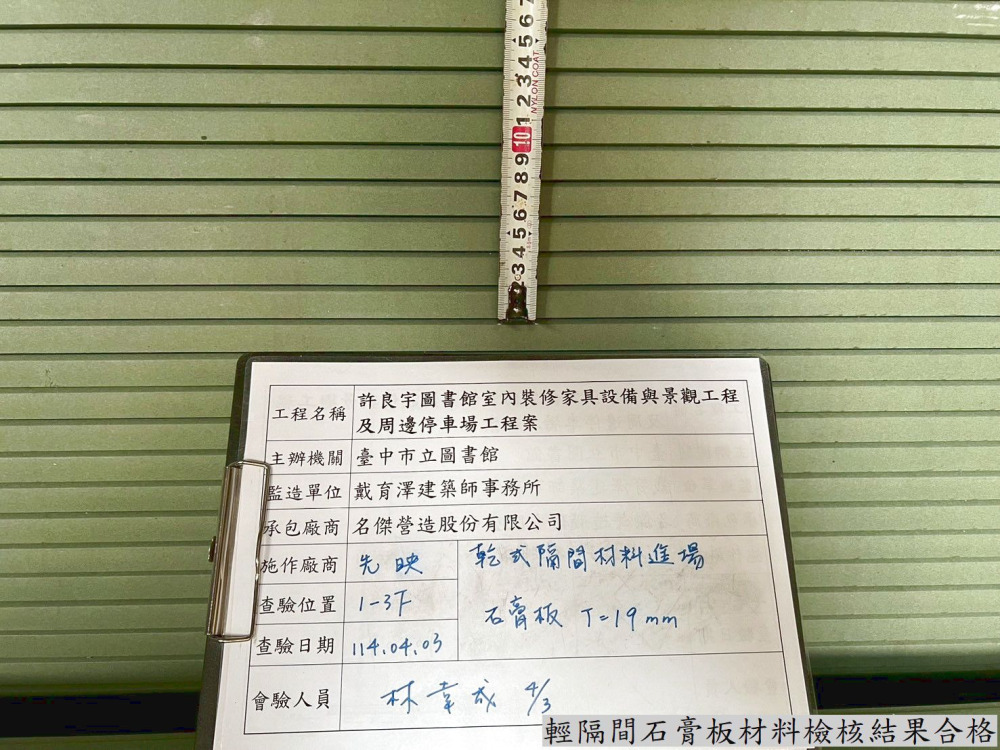 7
6
5
4
3
2
1
10
9
8
7
6
5
4
3
2
NYLON COAT
工程名稱 許良宇圖書館室內裝修家具設備與景觀工程
及周邊停車場工程案
主辦機關 臺中市立圖書館
監造單位 戴育澤建築師事務所
承包廠商 名傑營造股份有限公司
施作廠商 先映 乾式隔間材料進場
查驗位置 1-3F 石膏板 T=19mm
查驗日期 114.04.03
會驗人員 林幸成 4/3
輕隔間石膏板材料檢核結果合格